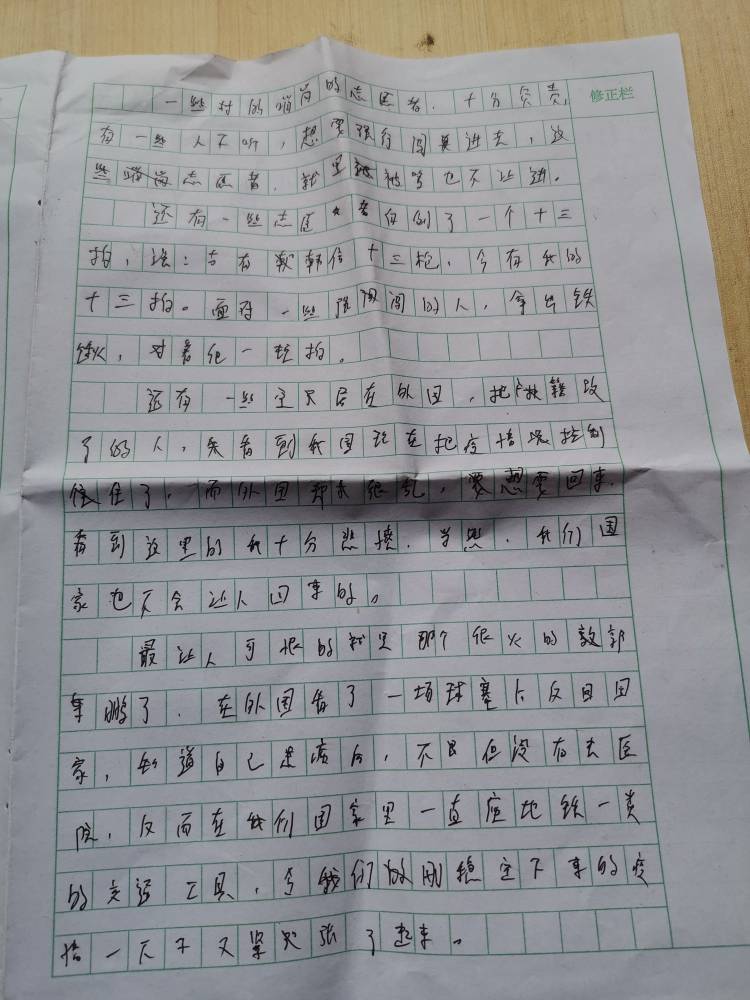 修正栏
一些村的哨岗的志医者,十分负责,
有一些人不听,想要强行闯进去,这
些哨岗志医者,就是被骂也不让进。
还有一些志医者自创了一个十三
拍,说:古有戴韩信十三枪,今有我的
十三拍。面对一些强闯的人,拿出铁
锹,对着他一顿拍。
还有一些定居在外国,把户籍改
了的人,看到我国现在把疫情控制
住了,而外国却很乱,想要回来,
看到这里的我十分悲愤,当然,我们国
家也不会让人回来的。
最让人可恨的就是那个很火的郭
某鹏了,在外国看了一场球赛后反回国
家,知道自己是病后,不但没有去医
院,反而在我们国家里一直座地铁一类
的交通工具,令我们刚稳定下来的疫
情一下子又紧张了起来。